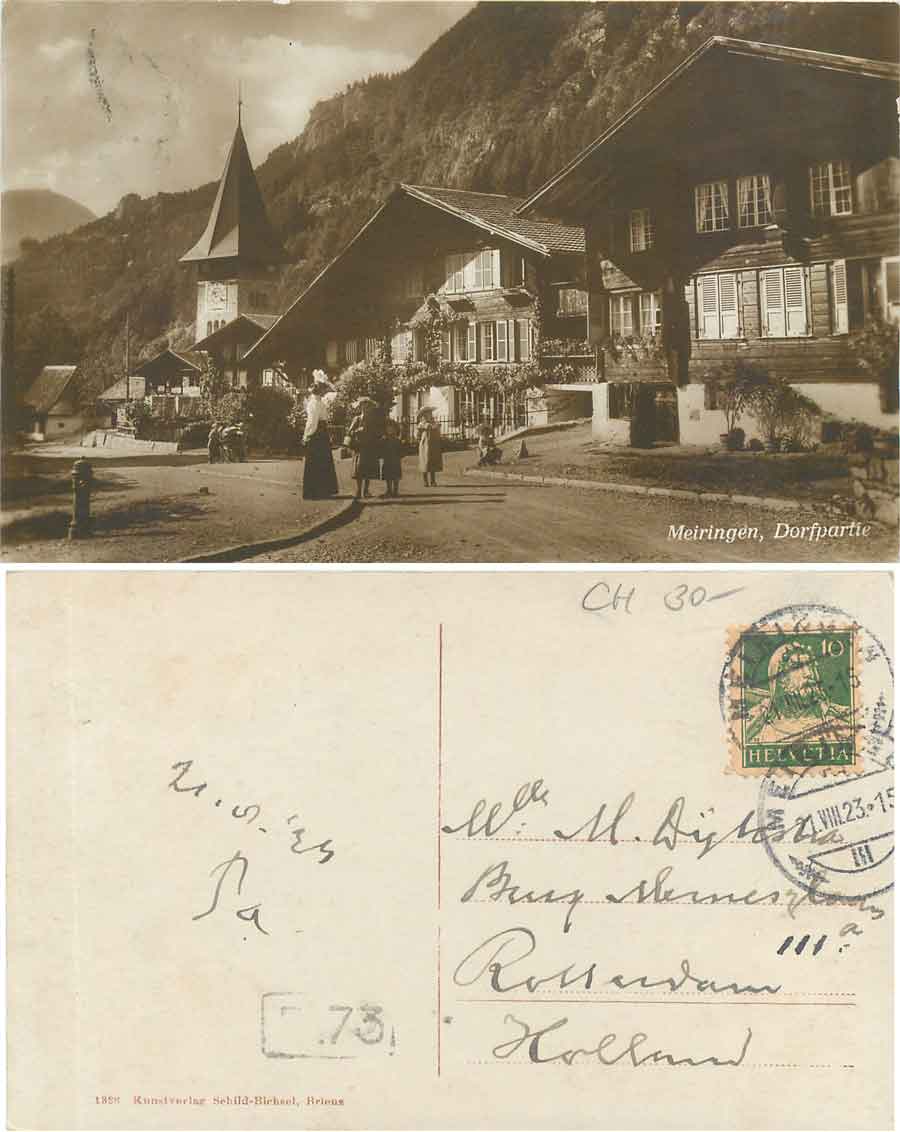 Meiringen, Dorfpartie
CH 30-
10
HELVETIA
MEIRINGEN
21.VIII.23.-15
III
21.8.'23
Pa
Mlle. M. Dijkstra
Burg Meineszlaan
111a.
Rotterdam
Holland
73
Kunstverlag Schild-Bichsel, Brienz